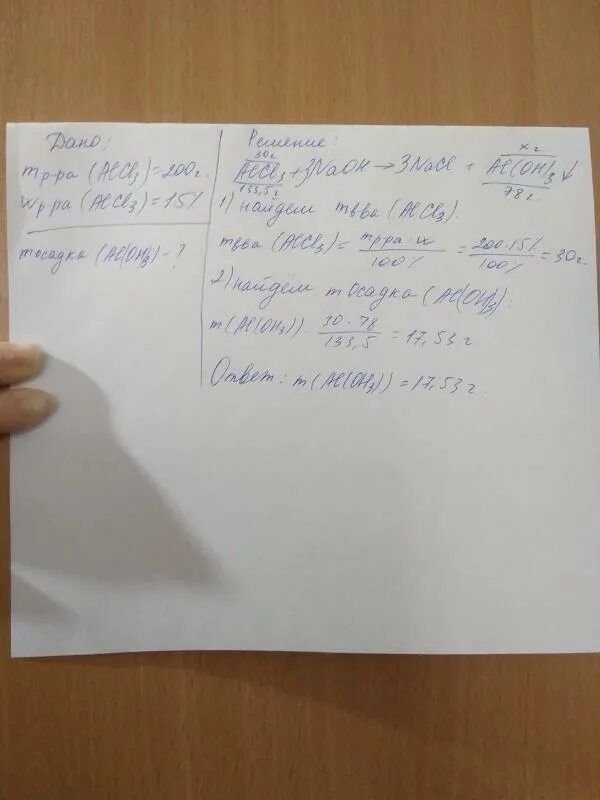 Дано:
mр-ра (AlCl₃)=200г.
Wр-ра (AlCl₃)=15%
mосадка (Al(OH)₃)-?
Решение:
30г xг
AlCl₃+3NaOH→3NaCl + Al(OH)₃↓
133,5г 78г.
1) найдем mв-ва (AlCl₃).
mв-ва (AlCl₃)= mр-ра·w/100% = 200·15%/100% =30г
2) найдём mОсадка (Al(OH)₃):
m(Al(OH₃)) 30·78/133,5 =17,53г.
Ответ: m(Al(OH₃))=17,53г.